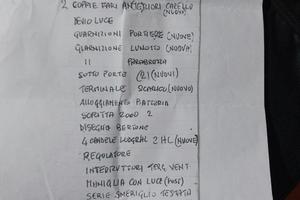 2 COPPIE FARI ANTERIORI CARELLO (NUOVI)
DEVIO LUCE
GUARNIZIONI PORTIERE (NUOVE)
GUARNIZIONE LUNOTTO (NUOVA)
11 PARABREZZA
SOTTO PORTA (2) (NUOVI)
TERMINALE SCARICO (NUOVO)
ALLOGGIAMENTO BATTERIA
SCRITTA 2000 2
DISEGNO BERTONE
4 CANDELE LODGRAL 2HL (NUOVE)
REGOLATORE
INTERRUTTORI TERG. VENT.
MANIGLIA CON LUCE
SERIE SMERIGLIO TESTATA